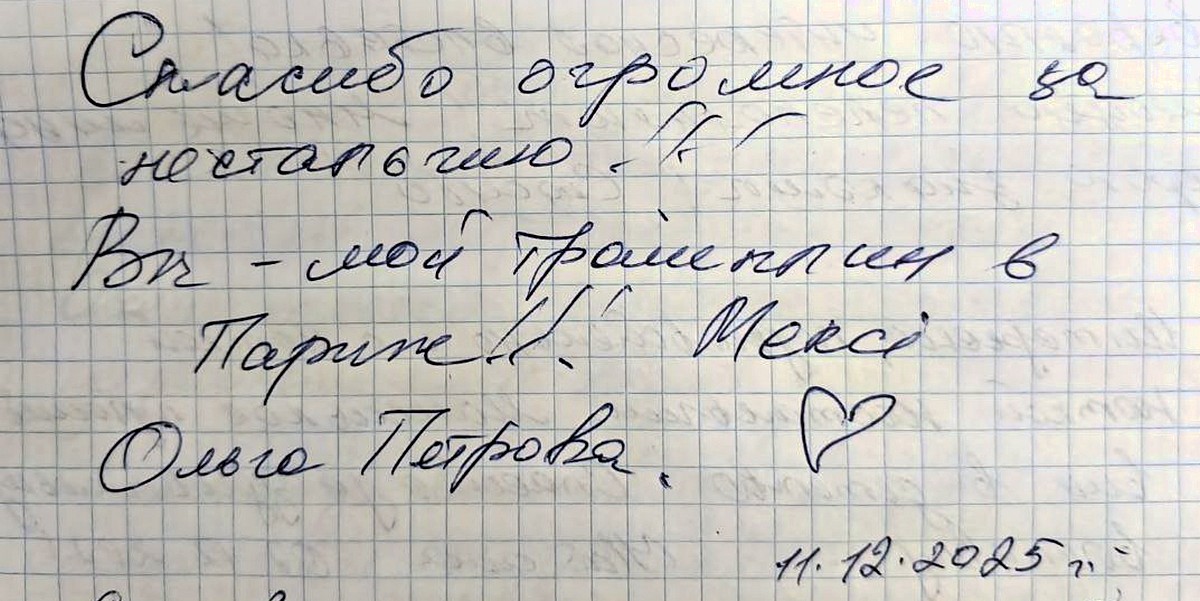 Спасибо огромное за
ностальгию!!!
Вы - мой трамплин в
Париж!!! Мерси
Ольга Петрова.
11.12.2025 г.